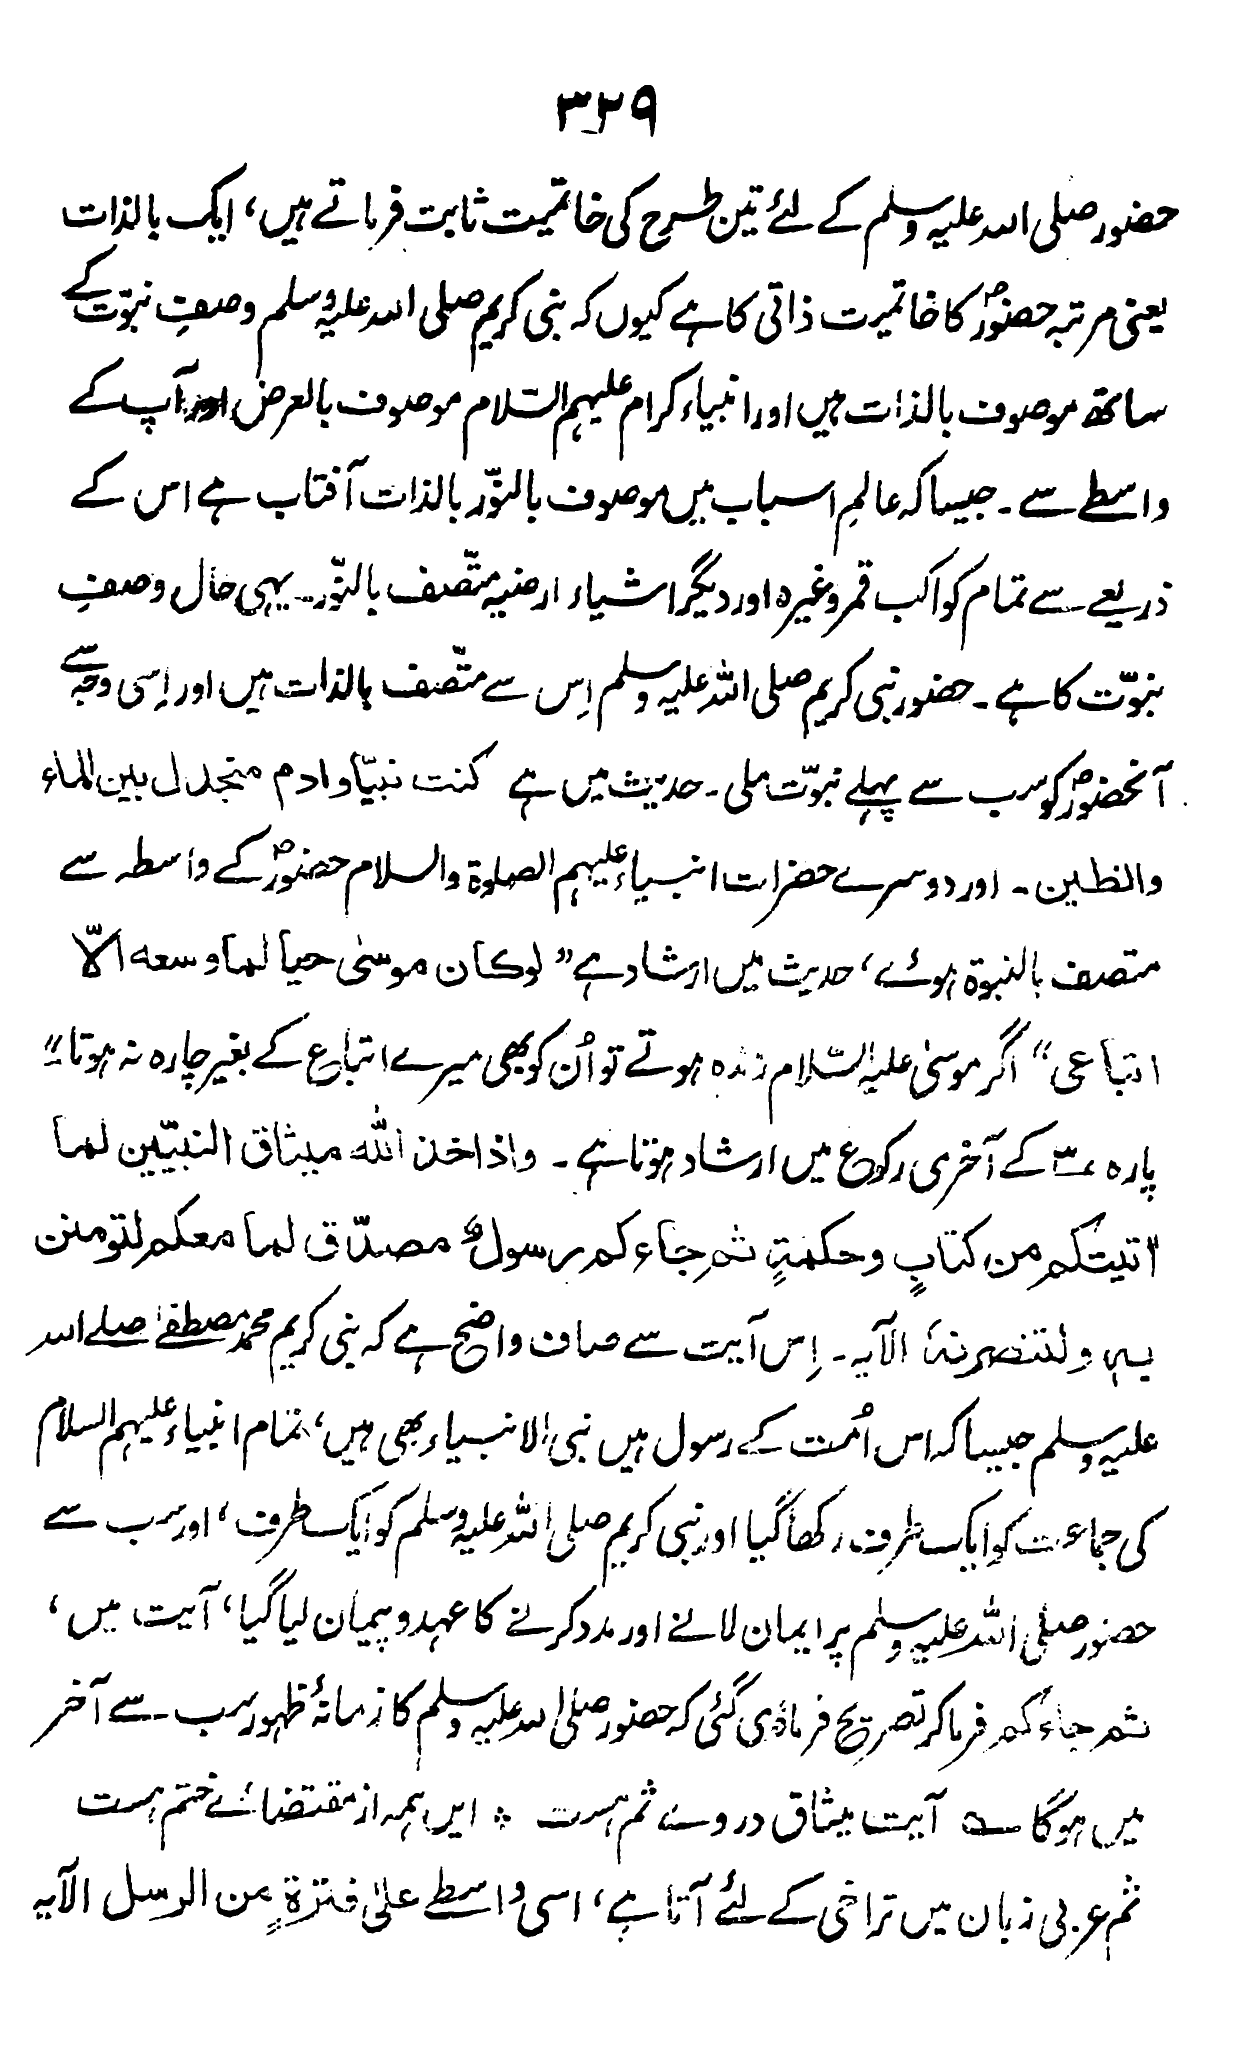 ۳۲۹
حضور صلی اللہ علیہ وسلم کے لئے تین طرح کی خاتمیت ثابت فرماتے ہیں، ایک بالذات
یعنی مرتبہ حضورؐ کا خاتمیت ذاتی کا ہے کیوں کہ نبی کریم صلی اللہ علیہ وسلم وصفِ نبوّت کے
ساتھ موصوف بالذات ہیں اور انبیاء کرام علیہم السّلام موصوف بالعرض اور آپ کے
واسطے سے ۔ جیسا کہ عالمِ اسباب میں موصوف بالنّور بالذات آفتاب ہے اس کے
ذریعے سے تمام کواکب قمر وغیرہ اور دیگر اشیاء ارضیہ متّصف بالنّور ۔ یہی حال وصفِ
نبوّت کا ہے ۔ حضور نبی کریم صلی اللہ علیہ وسلم اِس سے متّصف بالذات ہیں اور اِسی وجہ سے
آنحضورؐ کو سب سے پہلے نبوّت ملی ۔ حدیث میں ہے کنت نبیّا و ادم منجدل بین الماء
والطین ۔ اور دوسرے حضرات انبیاء علیہم الصلوۃ والسلام حضورؐ کے واسطہ سے
متصف بالنبوۃ ہوئے، حدیث میں ارشاد ہے ”لوکان موسٰی حیا لما وسعہ الّا
اتباعی“ اگر موسیٰ علیہ السّلام زندہ ہوتے تو اُن کو بھی میرے اتباع کے بغیر چارہ نہ ہوتا۔“
پارہ ۳ کے آخری رکوع میں ارشاد ہوتا ہے ۔ واذ اخذ اللہ میثاق النبیّین لما
اٰتیتکم من کتابٍ و حکمةٍ ثم جاءکم رسولٌ مصدّق لما معکم لتومنن
بہ ولتنصرنہٗ الآیہ ۔ اِس آیت سے صاف واضح ہے کہ نبی کریم محمد مصطفٰے صلے اللہ
علیہ وسلم جیسا کہ اس اُمت کے رسول ہیں نبی الانبیاء بھی ہیں، تمام انبیاء علیہم السلام
کی جماعت کو ایک طرف رکھا گیا اور نبی کریم صلی اللہ علیہ وسلم کو ایک طرف، اور سب سے
حضور صلی اللہ علیہ وسلم پر ایمان لانے اور مدد کرنے کا عہد و پیمان لیا گیا، آیت میں،
ثم جاءکم فرما کر تصریح فرما دی گئی کہ حضور صلی اللہ علیہ وسلم کا زمانۂ ظہور سب سے آخر
میں ہوگا ؎ آیت میثاق در وے ثم ہست ٭ ایں ہمہ از مقتضائے ختم ہست
ثم عربی زبان میں تراخی کے لئے آتا ہے، اسی واسطے علیٰ فترةٍ من الرسل الآیہ